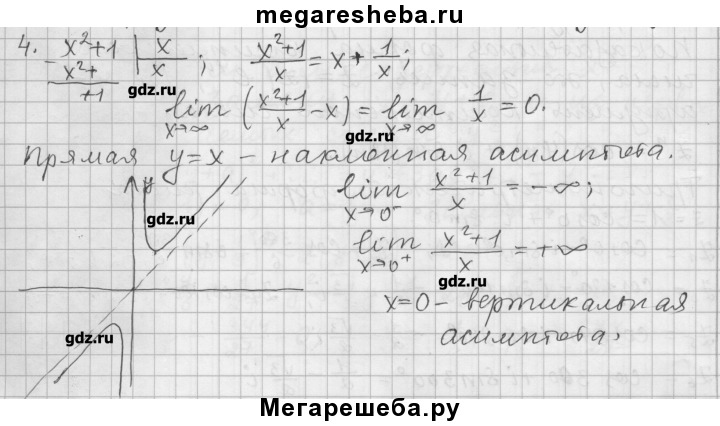 megaresheba.ru
4. x²+1 | x ; (x²+1)/x = x + 1/x ;
- x²+ | x
+1
gdz.ru
lim x→∞ ((x²+1)/x - x) = lim x→∞ 1/x = 0.
gdz.ru
Прямая y=x – наклонная асимптота.
y
gdz.ru
lim x→0⁻ (x²+1)/x = -∞;
lim x→0⁺ (x²+1)/x = +∞
gdz.ru
x=0 – вертикальная
gdz.ru
асимптота.
Мегарешеба.ру